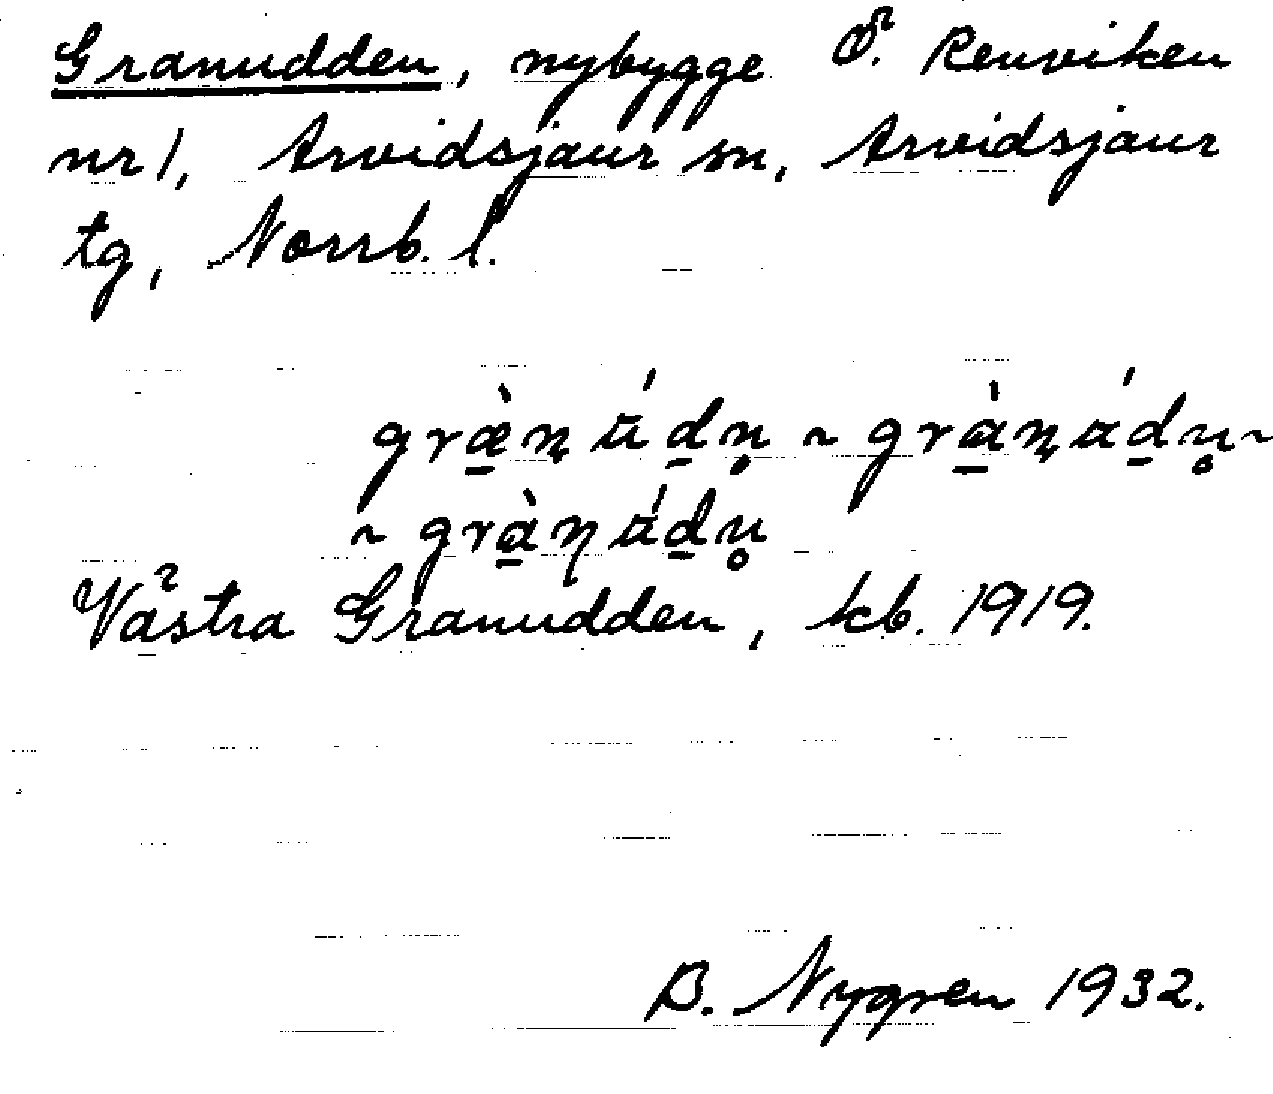 Granudden, nybygge Ö. Renviken
nr 1, Arvidsjaur sn, Arvidsjaur
tg, Norrb. l.
græ̠̀n̥ ŭ́d̠n̥ ~ grà̠n̥ŭ́d̠n̥ ~
~ grà̠ŋŭ́d̠n̥
Västra Granudden, kb. 1919.
B. Nygren 1932.